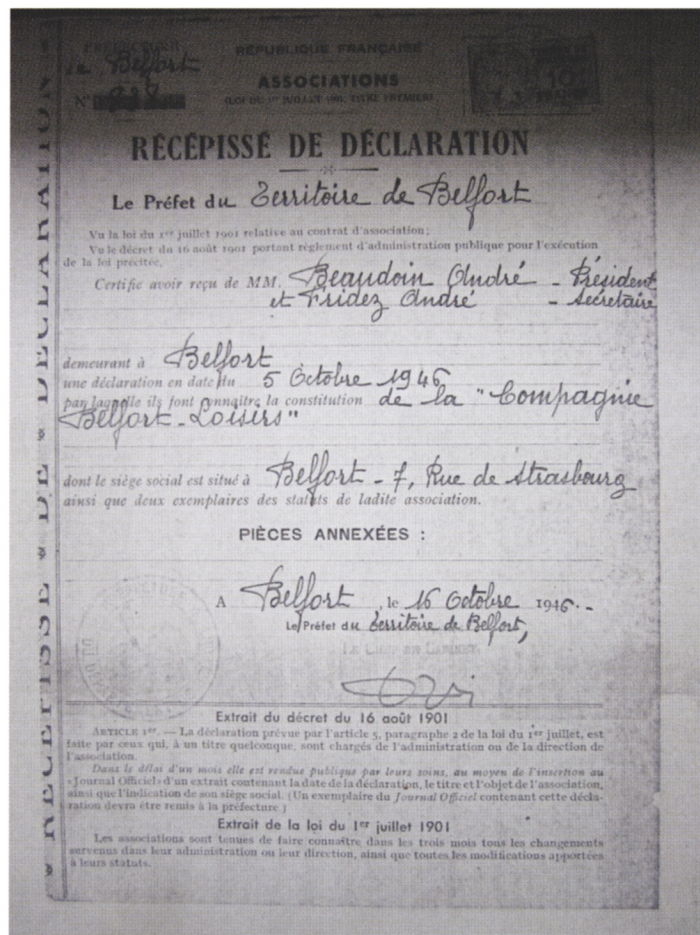 PRÉFECTURE
de Belfort
N°
RÉPUBLIQUE FRANÇAISE
ASSOCIATIONS
(LOI DU 1er JUILLET 1901, TITRE PREMIER)
RÉCÉPISSÉ DE DÉCLARATION
Le Préfet du Territoire de Belfort
Vu la loi du 1er juillet 1901 relative au contrat d'association;
Vu le décret du 16 août 1901 portant règlement d'administration publique pour l'exécution
de la loi précitée,
Certifie avoir reçu de MM. Beaudoin André - Président
et Fridez André - Secrétaire
demeurant à Belfort
une déclaration en date du 5 Octobre 1946
par laquelle ils font connaître la constitution de la "Compagnie
Belfort-Loisirs"
dont le siège social est situé à Belfort - 7, Rue de Strasbourg
ainsi que deux exemplaires des statuts de ladite association.
PIÈCES ANNEXÉES :
A Belfort, le 16 Octobre 1946.-
Le Préfet du Territoire de Belfort,
LE CHEF DE CABINET,
Extrait du décret du 16 août 1901
ARTICLE 1er. — La déclaration prévue par l'article 5, paragraphe 2 de la loi du 1er juillet, est
faite par ceux qui, à un titre quelconque, sont chargés de l'administration ou de la direction de
l'association.
Dans le délai d'un mois elle est rendue publique par leurs soins, au moyen de l'insertion au
«Journal Officiel» d'un extrait contenant la date de la déclaration, le titre et l'objet de l'association,
ainsi que l'indication de son siège social. (Un exemplaire du Journal Officiel contenant cette décla-
ration devra être remis à la préfecture.)
Extrait de la loi du 1er juillet 1901
Les associations sont tenues de faire connaître dans les trois mois tous les changements
survenus dans leur administration ou leur direction, ainsi que toutes les modifications apportées
à leurs statuts.
RÉCÉPISSÉ * DE * DÉCLARATION